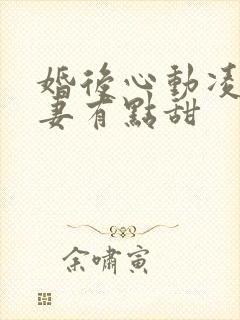 婚後心動凌
妻有點甜
余嘯寅